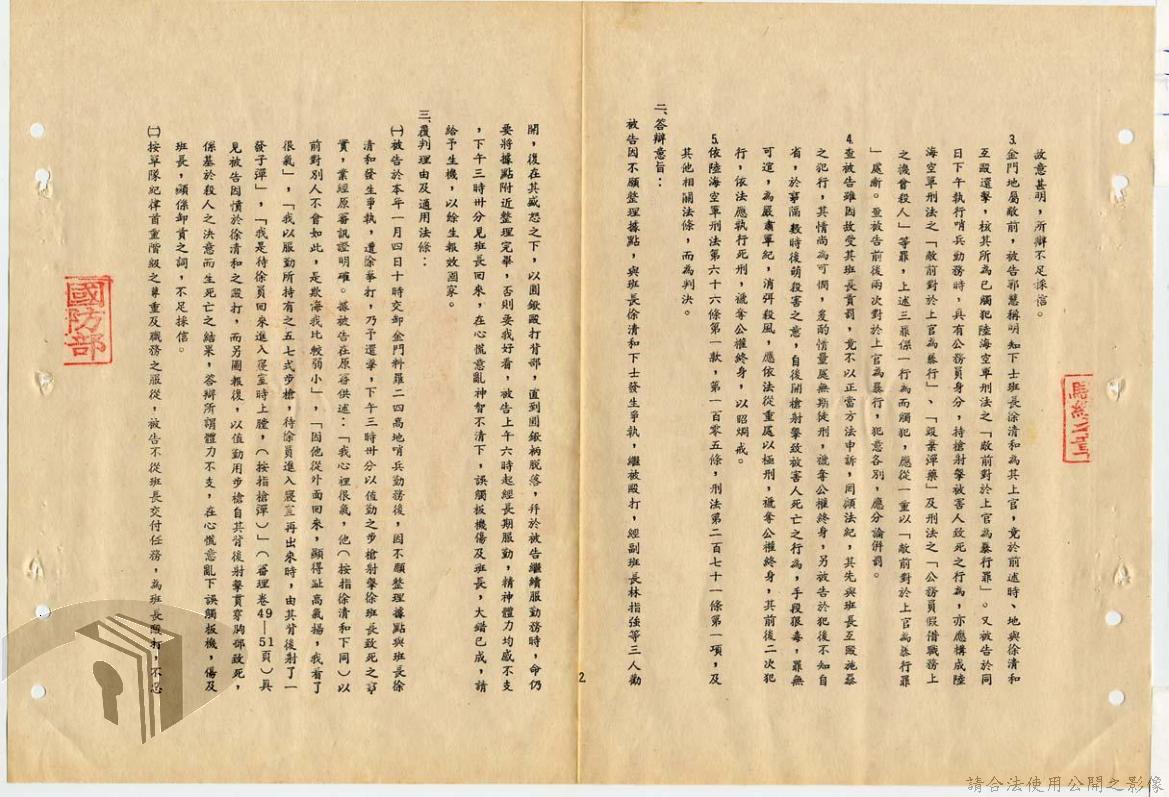 故意甚明，所辯不足採信。
3.金門地屬敵前，被告郭慧稱明知下士班長徐清和為其上官，竟於前述時、地與徐清和
互毆還擊，核其所為已觸犯陸海空軍刑法之「敵前對於上官為暴行罪」。又被告於同
日下午執行哨兵勤務時，具有公務員身分，持槍射擊被害人致死之行為，亦應構成陸
海空軍刑法之「敵前對於上官為暴行」、「毀棄彈藥」及刑法之「公務員假借職務上
之機會殺人」等罪，上述三罪係一行為而觸犯，應從一重以「敵前對於上官為暴行罪
」處斷。至被告前後兩次對於上官為暴行，犯意各別，應分論併罰。
4.查被告雖因故受其班長責罰，竟不以正當方法申訴，罔顧法紀，其先與班長互毆施暴
之犯行，其情尚為可憫，爰酌情量處無期徒刑，褫奪公權終身，另被告於犯後不知自
省，於事隔數時後萌殺害之意，自後開槍射擊致被害人死亡之行為，手段狠毒，罪無
可逭，為嚴肅軍紀，消弭殺風，應依法從重處以極刑，褫奪公權終身，其前後二次犯
行，依法應執行死刑，褫奪公權終身，以昭烱戒。
5.依陸海空軍刑法第六十六條第一款，第一百零五條，刑法第二百七十一條第一項，及
其他相關法條，而為判決。
二、答辯意旨：
被告因不願整理據點，與班長徐清和下士發生爭執，繼被毆打，經副班長林指強等三人勸
2
開，復在其盛怒之下，以圓鍬毆打背部，直到圓鍬柄脫落，并於被告繼續服勤務時，命仍
要將據點附近整理完畢，否則要我好看，被告上午六時起經長期服勤，精神體力均感不支
，下午三時卅分見班長回來，在心慌意亂神智不清下，誤觸板機傷及班長，大錯已成，請
給予生機，以餘生報效國家。
三、覆判理由及適用法條：
㈠被告於本年一月四日十時交卸金門料羅二四高地哨兵勤務後，因不願整理據點與班長徐
清和發生爭執，遭徐毆打，乃予還擊，下午三時卅分以值勤之步槍射擊徐班長致死之事
實，業經原審訊證明確。據被告在原審供述：「我心裡很氣，他（按指徐清和下同）以
前對別人不會如此，是欺侮我比較弱小」，「因他從外面回來，顯得趾高氣揚，我看了
很氣」，「我以服勤所持有之五七式步槍，待徐員進入寢室再出來時，由其背後射了一
發子彈」，「我是待徐員回來進入寢室時上膛，（按指槍彈）」（審理卷49—51頁）具
見被告因憤於徐清和之毆打，而另圖報復，以值勤用步槍自其背後射擊貫穿胸部致死，
係基於殺人之決意而生死亡之結果，答辯所謂體力不支，在心慌意亂下誤觸板機，傷及
班長，顯係卸責之詞，不足採信。
㈡按軍隊紀律首重階級之尊重及職務之服從，被告不從班長交付任務，為班長毆打，不忍
國防部
請合法使用公開之影像